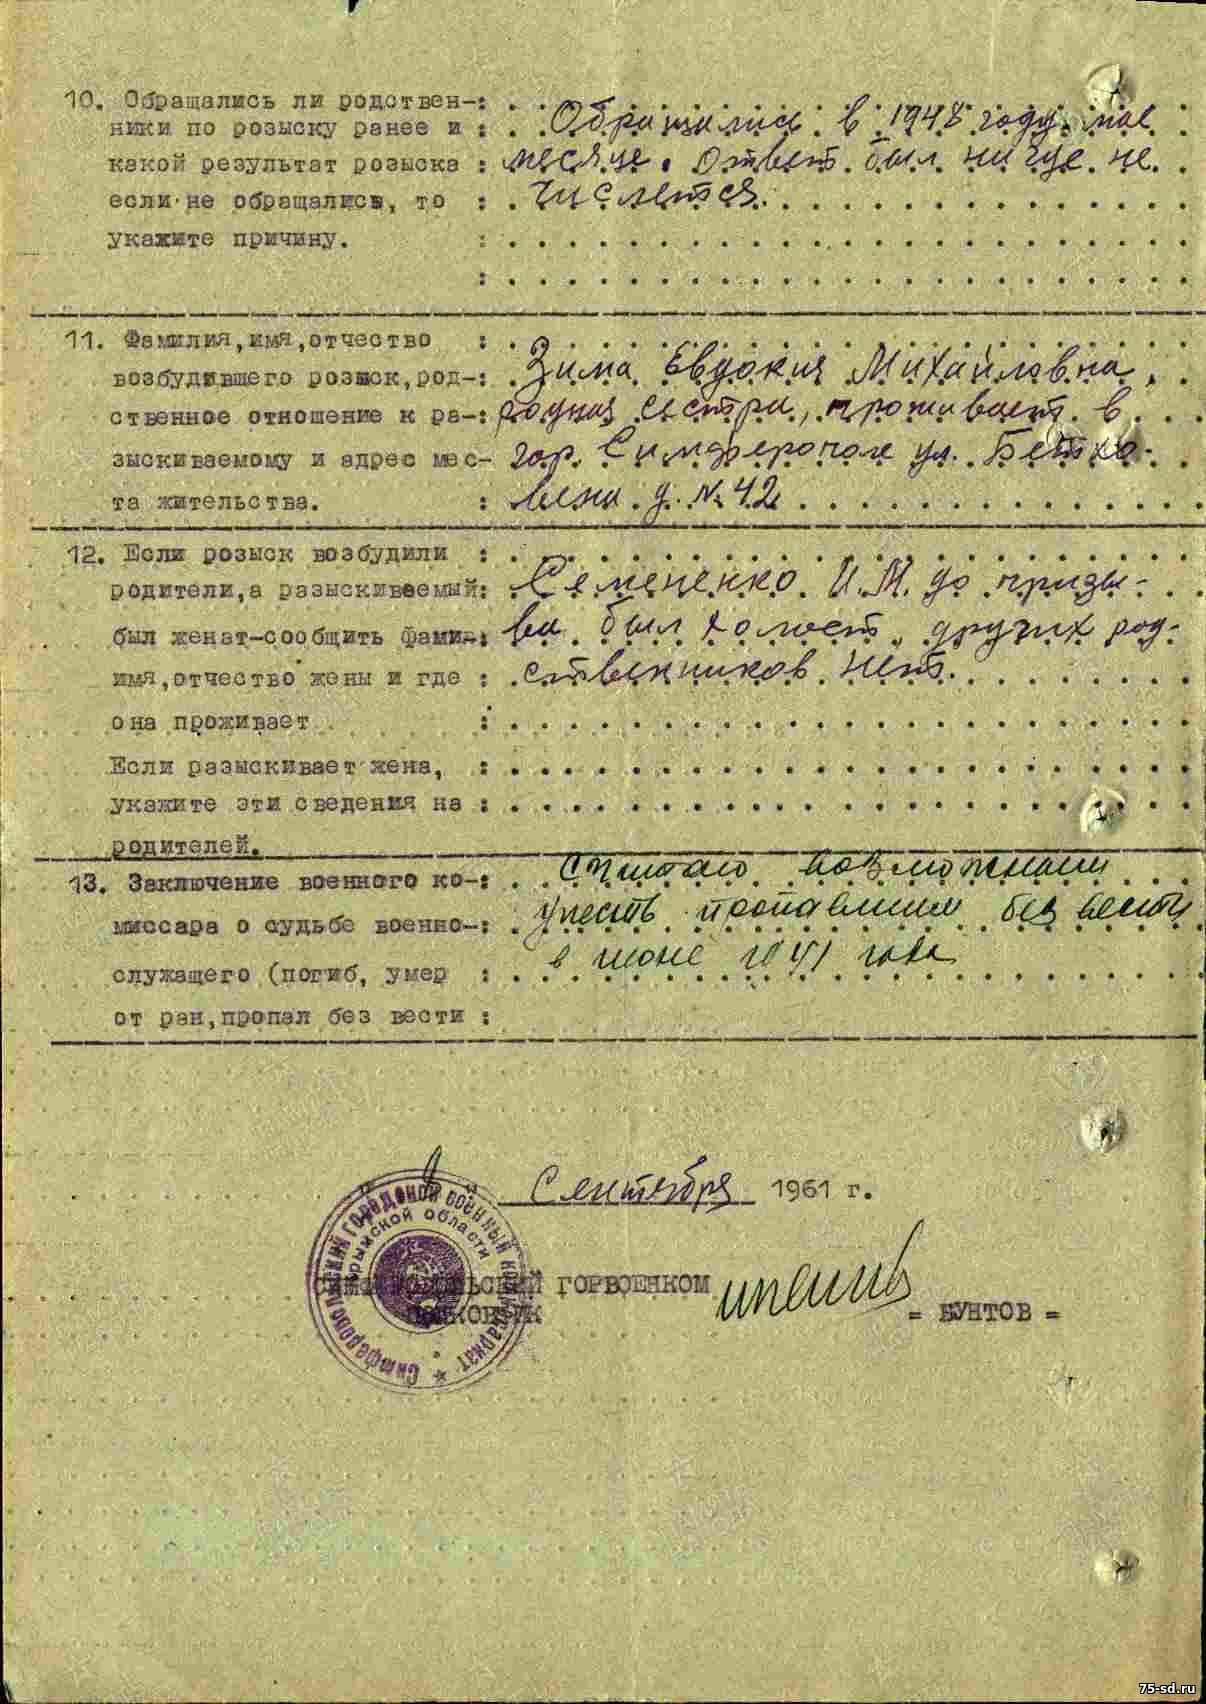 10. Обращались ли родствен-: Обращались в 1948 году мае
ники по розыску ранее и : месяце. Ответ был нигде не
какой результат розыска : числется.
если не обращались, то :
укажите причину. :
11. Фамилия,имя,отчество : Зима Евдокия Михайловна,
возбудившего розыск,род-: родная сестра, проживает в
ственное отношение к ра-: гор. Симферополе ул. Бетхо-
зыскиваемому и адрес мес- вена д. № 42
та жительства. :
12. Если розыск возбудили : Семененко И.М. до призы-
родители,а разыскиваемый: ва был холост, других род-
был женат-сообщить фамил: ственников нет.
имя,отчество жены и где :
она проживает :
Если разыскивает жена, :
укажите эти сведения на :
родителей.
13. Заключение военного ко-: Считаю возможным
миссара о судьбе военно-: учесть пропавшим без вести
служащего (погиб, умер : в июне 1941 года
от ран,пропал без вести :
Сентября 1961 г.
СИМФЕРОПОЛЬСКИЙ ГОРВОЕНКОМ
ПОЛКОВНИК
= БУНТОВ =
Симферопольский городской военный комиссариат
Крымской области
75-sd.ru